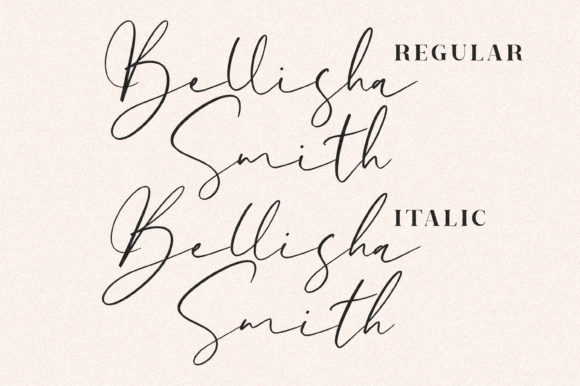 Bellisha REGULAR
Smith
Bellisha ITALIC
Smith